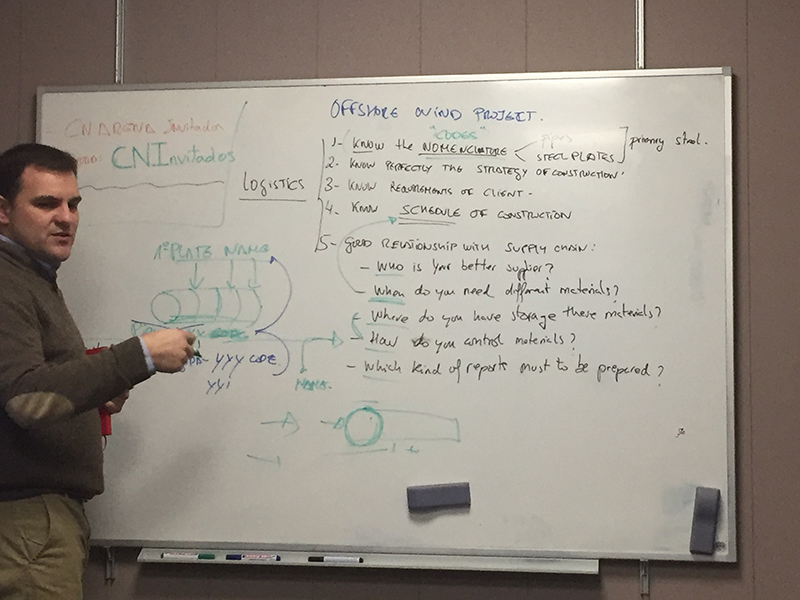 OFFSHORE WIND PROJECT.
CNARENA Invitados
CNInvitados
"CODES"
LOGISTICS
1- KNOW the NOMENCLATURE
pipes
STEEL PLATES
primary steel.
2- KNOW PERFECTLY THE STRATEGY OF CONSTRUCTION.
3- KNOW REQUIREMENTS OF CLIENT-
4. KNOW SCHEDULE OF CONSTRUCTION
5- GOOD RELATIONSHIP WITH SUPPLY CHAIN:
- WHO is your better supplier?
- When do you need different materials?
- Where do you have storage these materials?
- How do you control materials?
- Which kind of reports must to be prepared?
1º PLATE NAME
CODE
YYY CODE
YYI
NAME.